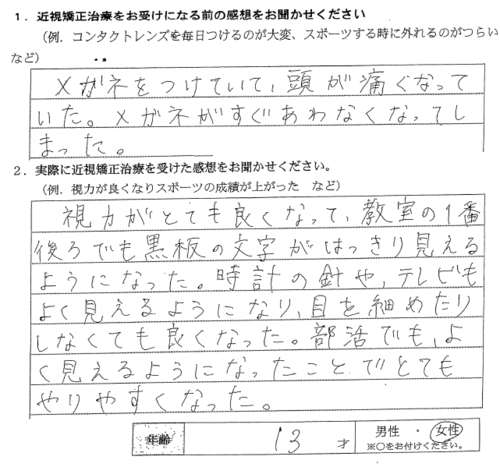 1. 近視矯正治療をお受けになる前の感想をお聞かせください
(例. コンタクトレンズを毎日つけるのが大変、スポーツする時に外れるのがつらい
など)
メガネをつけていて、頭が痛くなって
いた。メガネがすぐあわなくなってし
まった。
2. 実際に近視矯正治療を受けた感想をお聞かせください。
(例. 視力が良くなりスポーツの成績が上がった など)
視力がとても良くなって、教室の1番
後ろでも黒板の文字がはっきり見える
ようになった。時計の針や、テレビも
よく見えるようになり、目を細めたり
しなくても良くなった。部活でも、よ
く見えるようになったことでとても
やりやすくなった。
年齢 13 才 男性 ・ 女性
※○をお付けください。